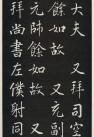 大夫又拜司空
餘如故又充副
元帥餘如故又
拜尚書左僕射同